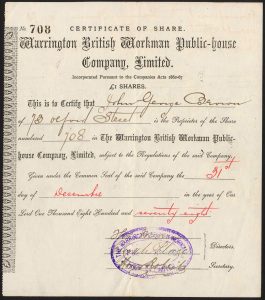 No 708 CERTIFICATE OF SHARE.
Warrington British Workman Public-house
Company, Limited.
Incorporated Pursuant to the Companies Acts
£1 SHARES.
This is to Certify that John George Brown
of Street is the Proprietor of the Share
numbered 708 in The Warrington British Workman Public-
house Company, Limited, subject to the Regulations of the said Company.
Given under the Common Seal of the said Company the 31st
day of December in the year of Our
Lord One Thousand Eight Hundred and seventy eight
Directors.
Secretary.